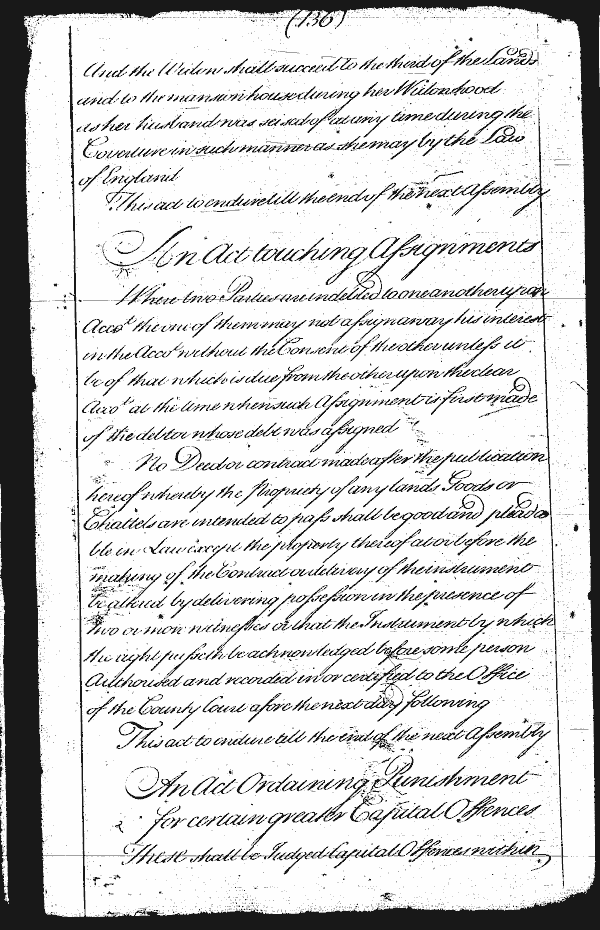 (136)
And the Widow shall succeed to the third of the Lands
and to the mansion house during her Widowhood
as her husband was seised of at any time during the
Coverture in such manner as she may by the Law
of England
This act to endure till the end of the next Assembly
An Act touching Assignments
Where two Parties are indebted to one another upon
Acco.t the one of them may not assign away his interest
in the Acco.t without the Consent of the other unless it
be of that which is due from the other upon the clear
Acco.t at the time when such Assignment is first made
of the debtor whose debt was assigned
No Deed or contract made after the publication
hereof whereby the Propriety of any lands Goods or
Chattels are intended to pass shall be good and pleada
ble in Law except the property thereof at or before the
making of the Contract or delivery of the instrument
be altered by delivering possession in the presence of
two or more witnesses or that the Instrument by which
the right passeth be acknowledged before some person
Authorised and recorded in or certified to the Office
of the County Court afore the next day following
This act to endure till the end of the next Assembly
An Act Ordaining Punishment
for certain greater Capital Offences
These shall be Judged Capital Offences within